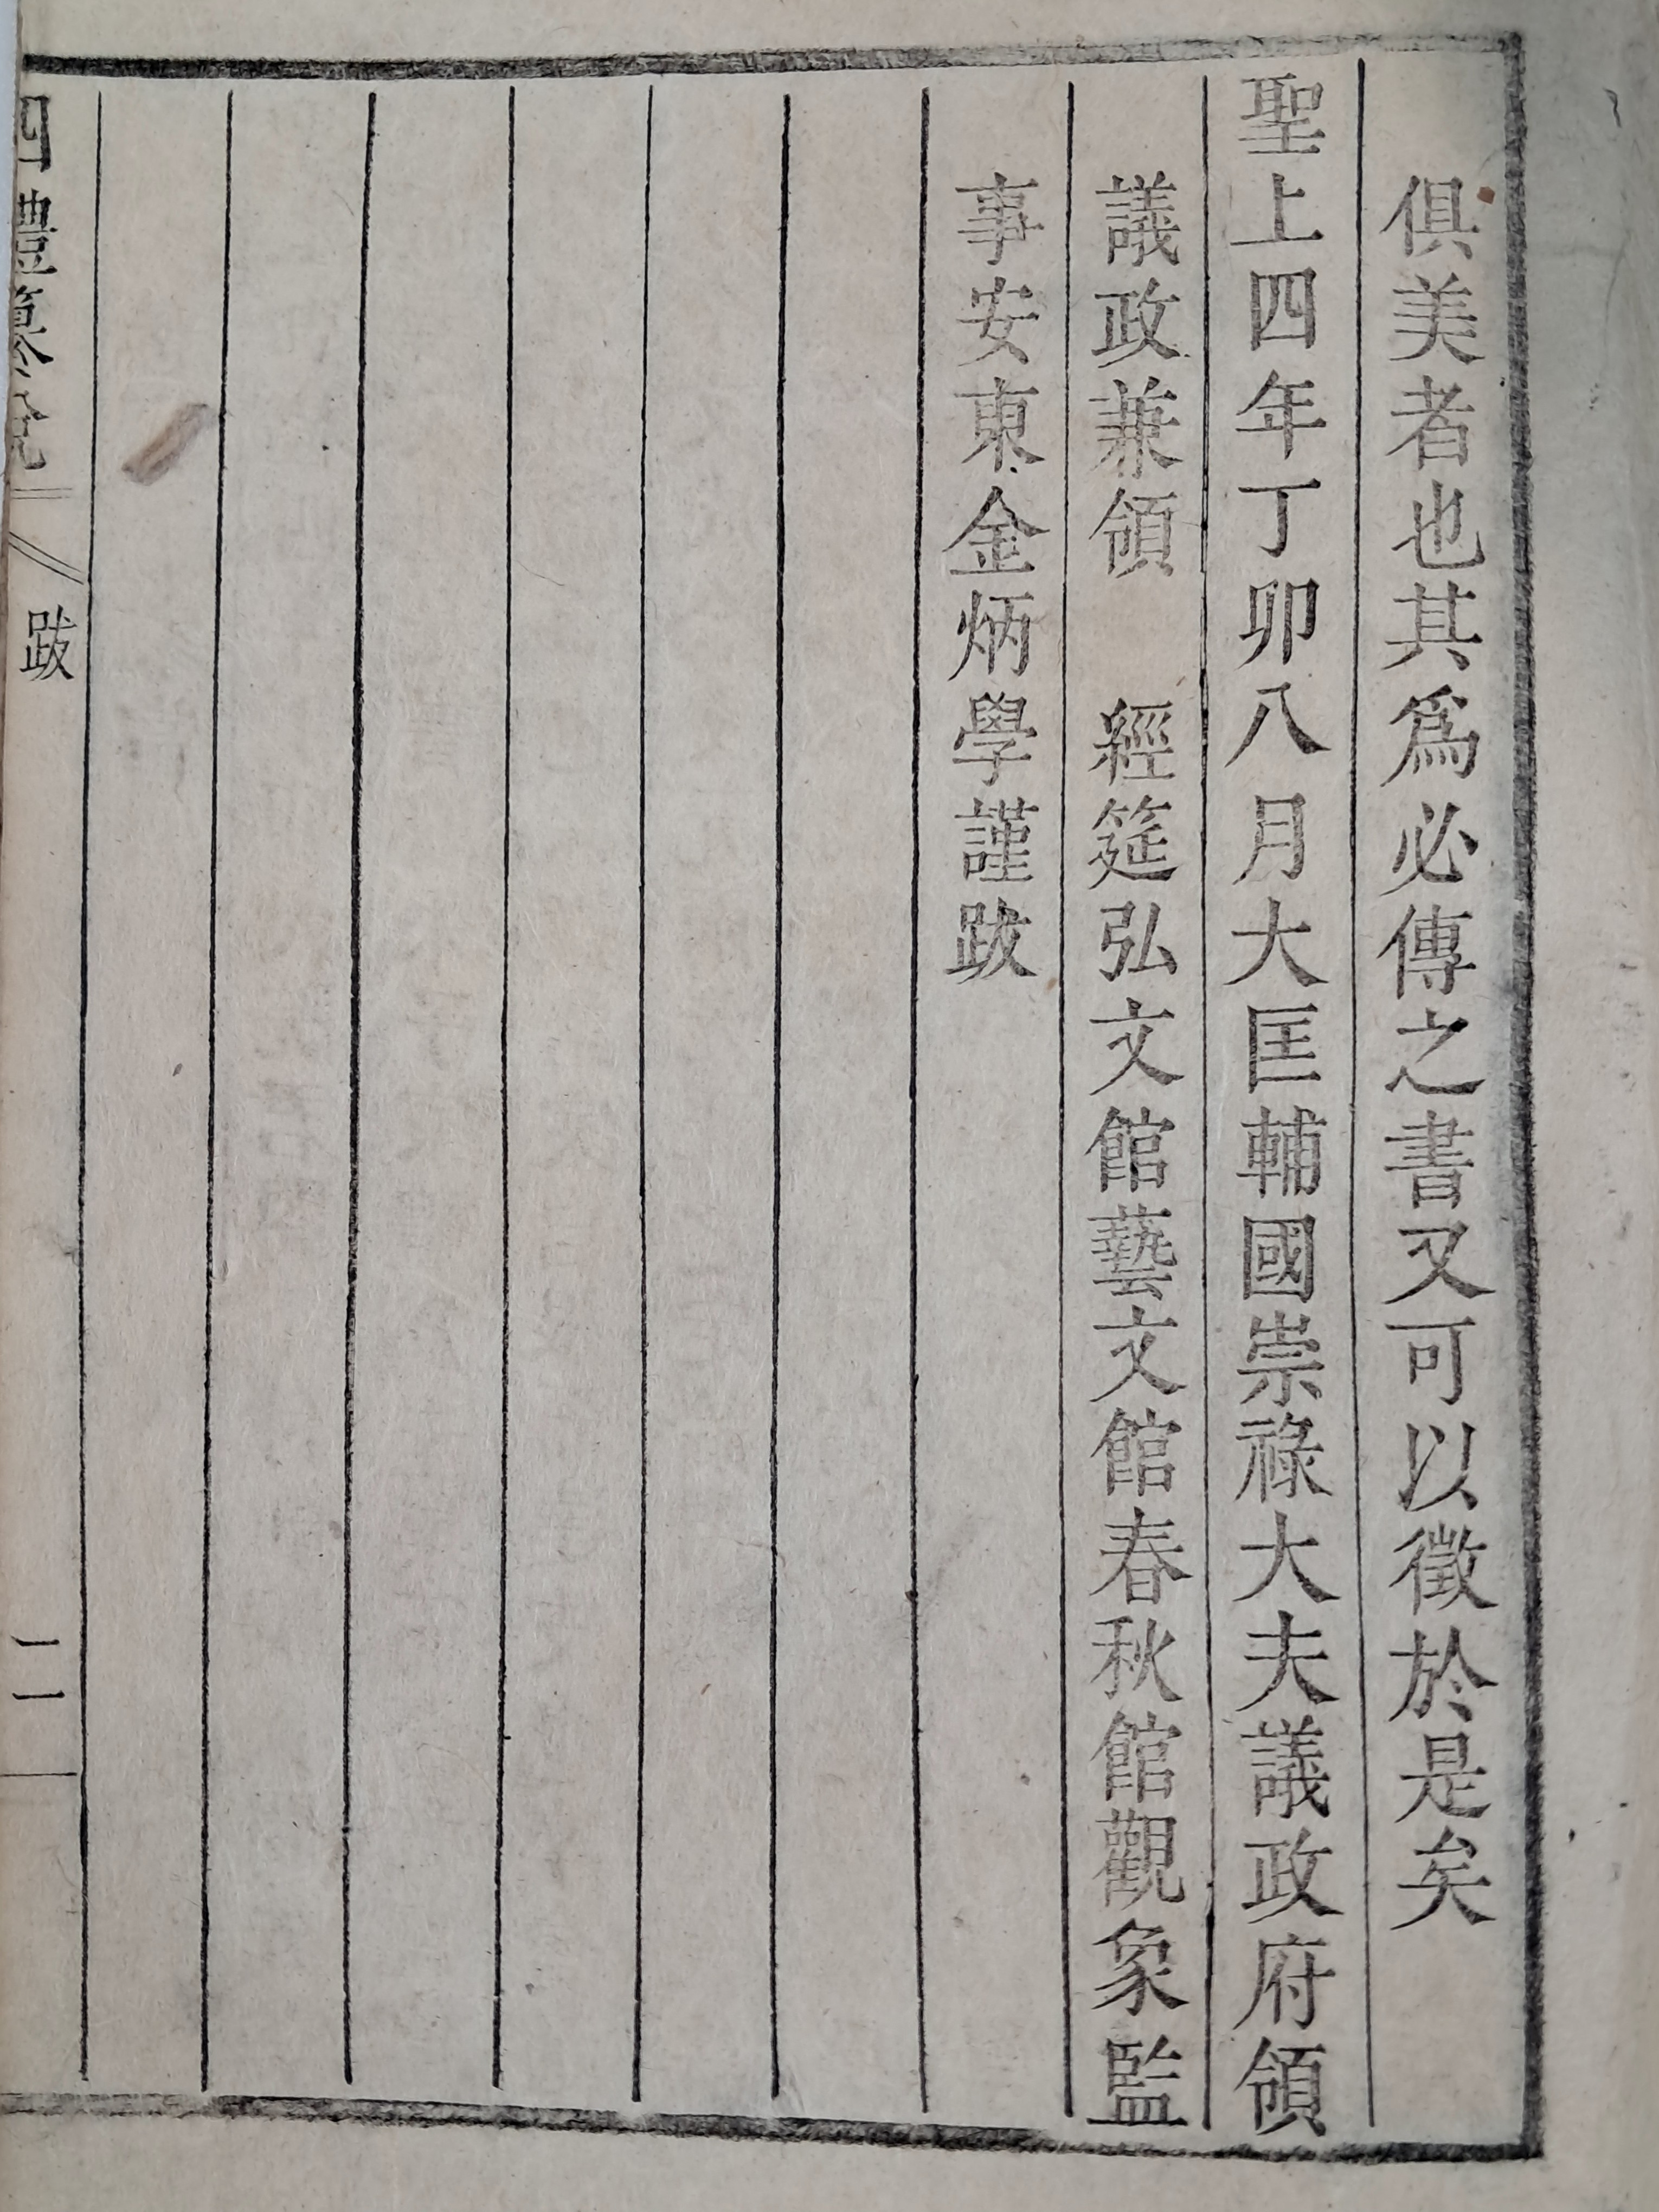 俱美者也其爲必傳之書又可以徵於是矣
聖上四年丁卯八月大匡輔國崇祿大夫議政府領
議政兼領 經筵弘文館藝文館春秋館觀象監
事安東金炳學謹跋
跋
二